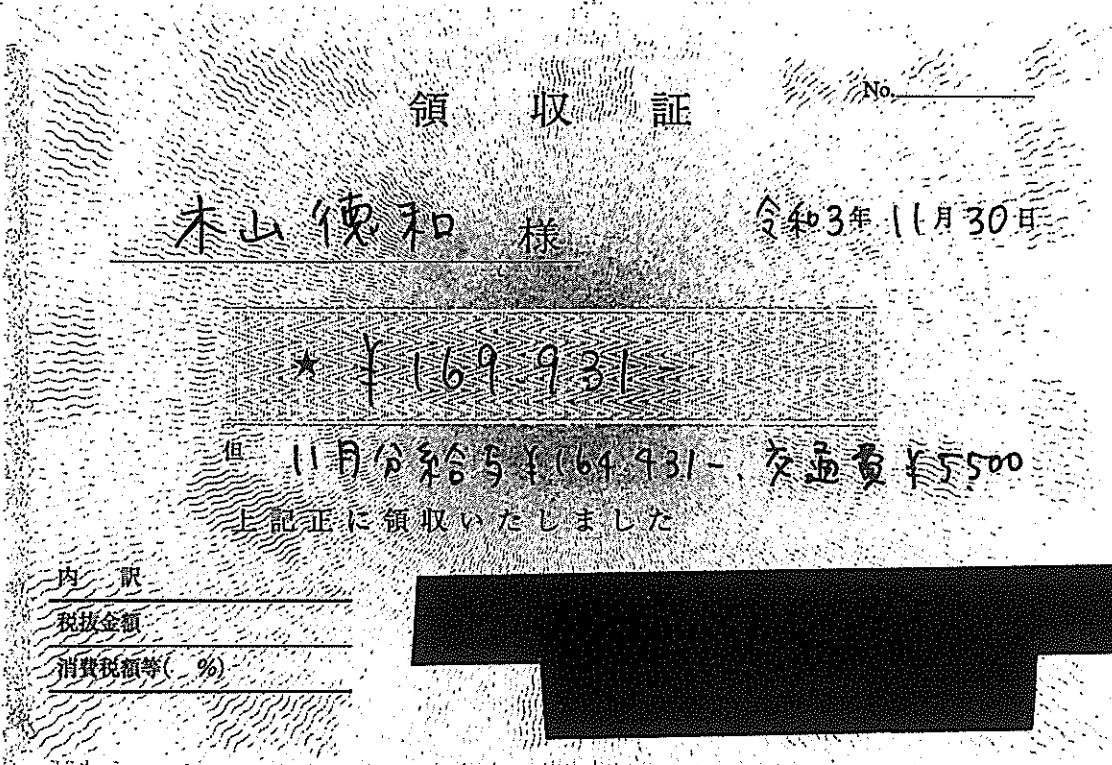 領 収 証
No.
木山 德和 様
令和3年 11月30日
★ ¥169.931-
但 11月分給与¥164.431-、交通費¥5500
上記正に領収いたしました
内 訳
税抜金額
消費税額等( %)